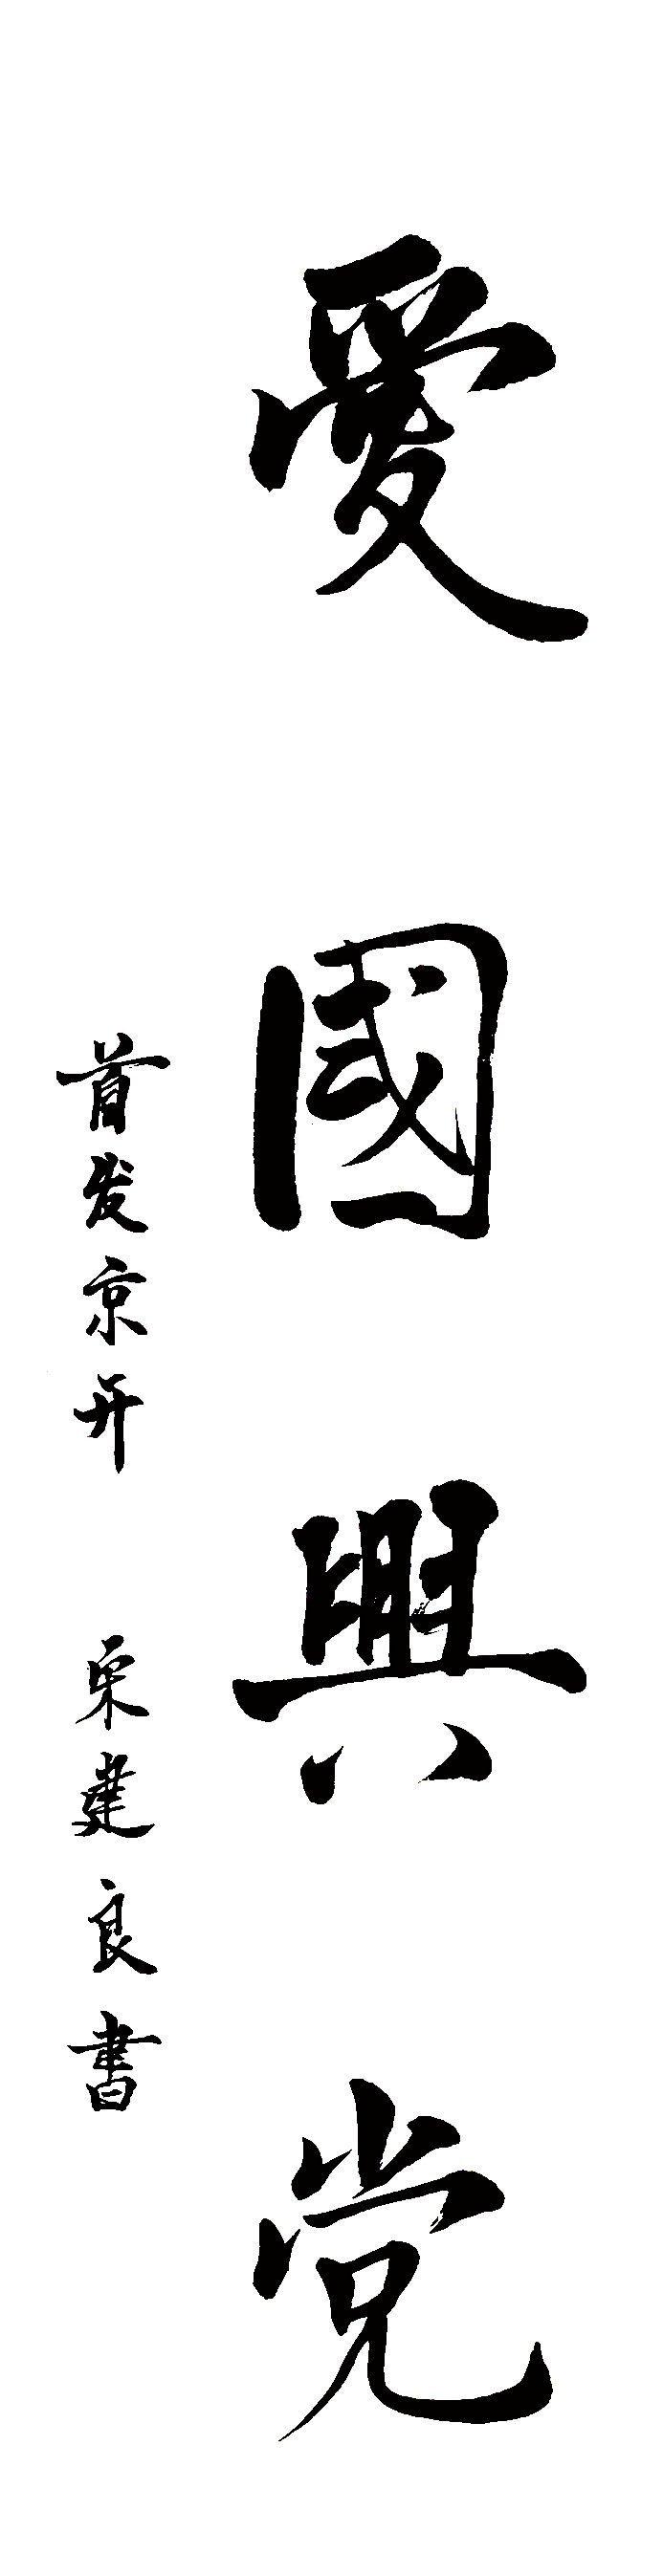 愛國興党
首发京开 栗建良書